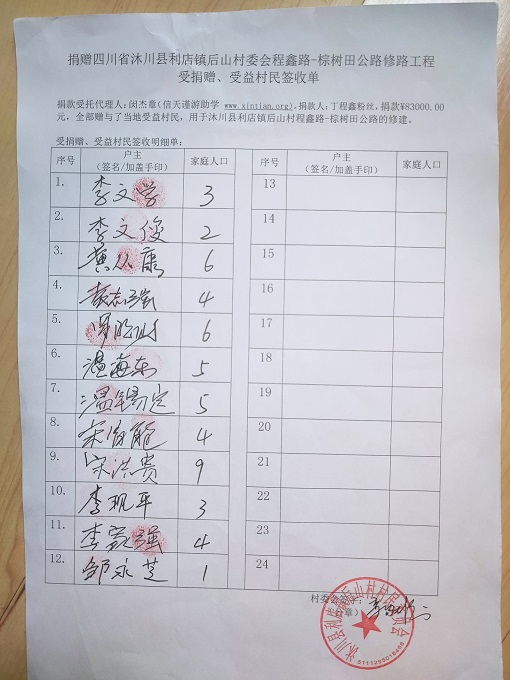 捐赠四川省沐川县利店镇后山村委会程鑫路-棕树田公路修路工程
受捐赠、受益村民签收单
捐款受托代理人:闵杰章(信天谨游助学 www.xintian.org),捐款人:丁程鑫粉丝,捐款¥83000.00
元,全部赠与了当地受益村民,用于沐川县利店镇后山村程鑫路-棕树田公路的修建。
受捐赠、受益村民签收明细单:
序号 户主(签名/加盖手印) 家庭人口 序号 户主(签名/加盖手印) 家庭人口
1. 李文学 3 13
2. 李文俊 2 14
3. 黄从康 6 15
4. 4 16
5. 6 17
6. 温海东 5 18
7. 温锡定 5 19
8. 4 20
9. 宋洪贵 9 21
10. 李现平 3 22
11. 李家强 4 23
12. 邹永芝 1 24
村委会
沐川县利店镇后山村村民委员会